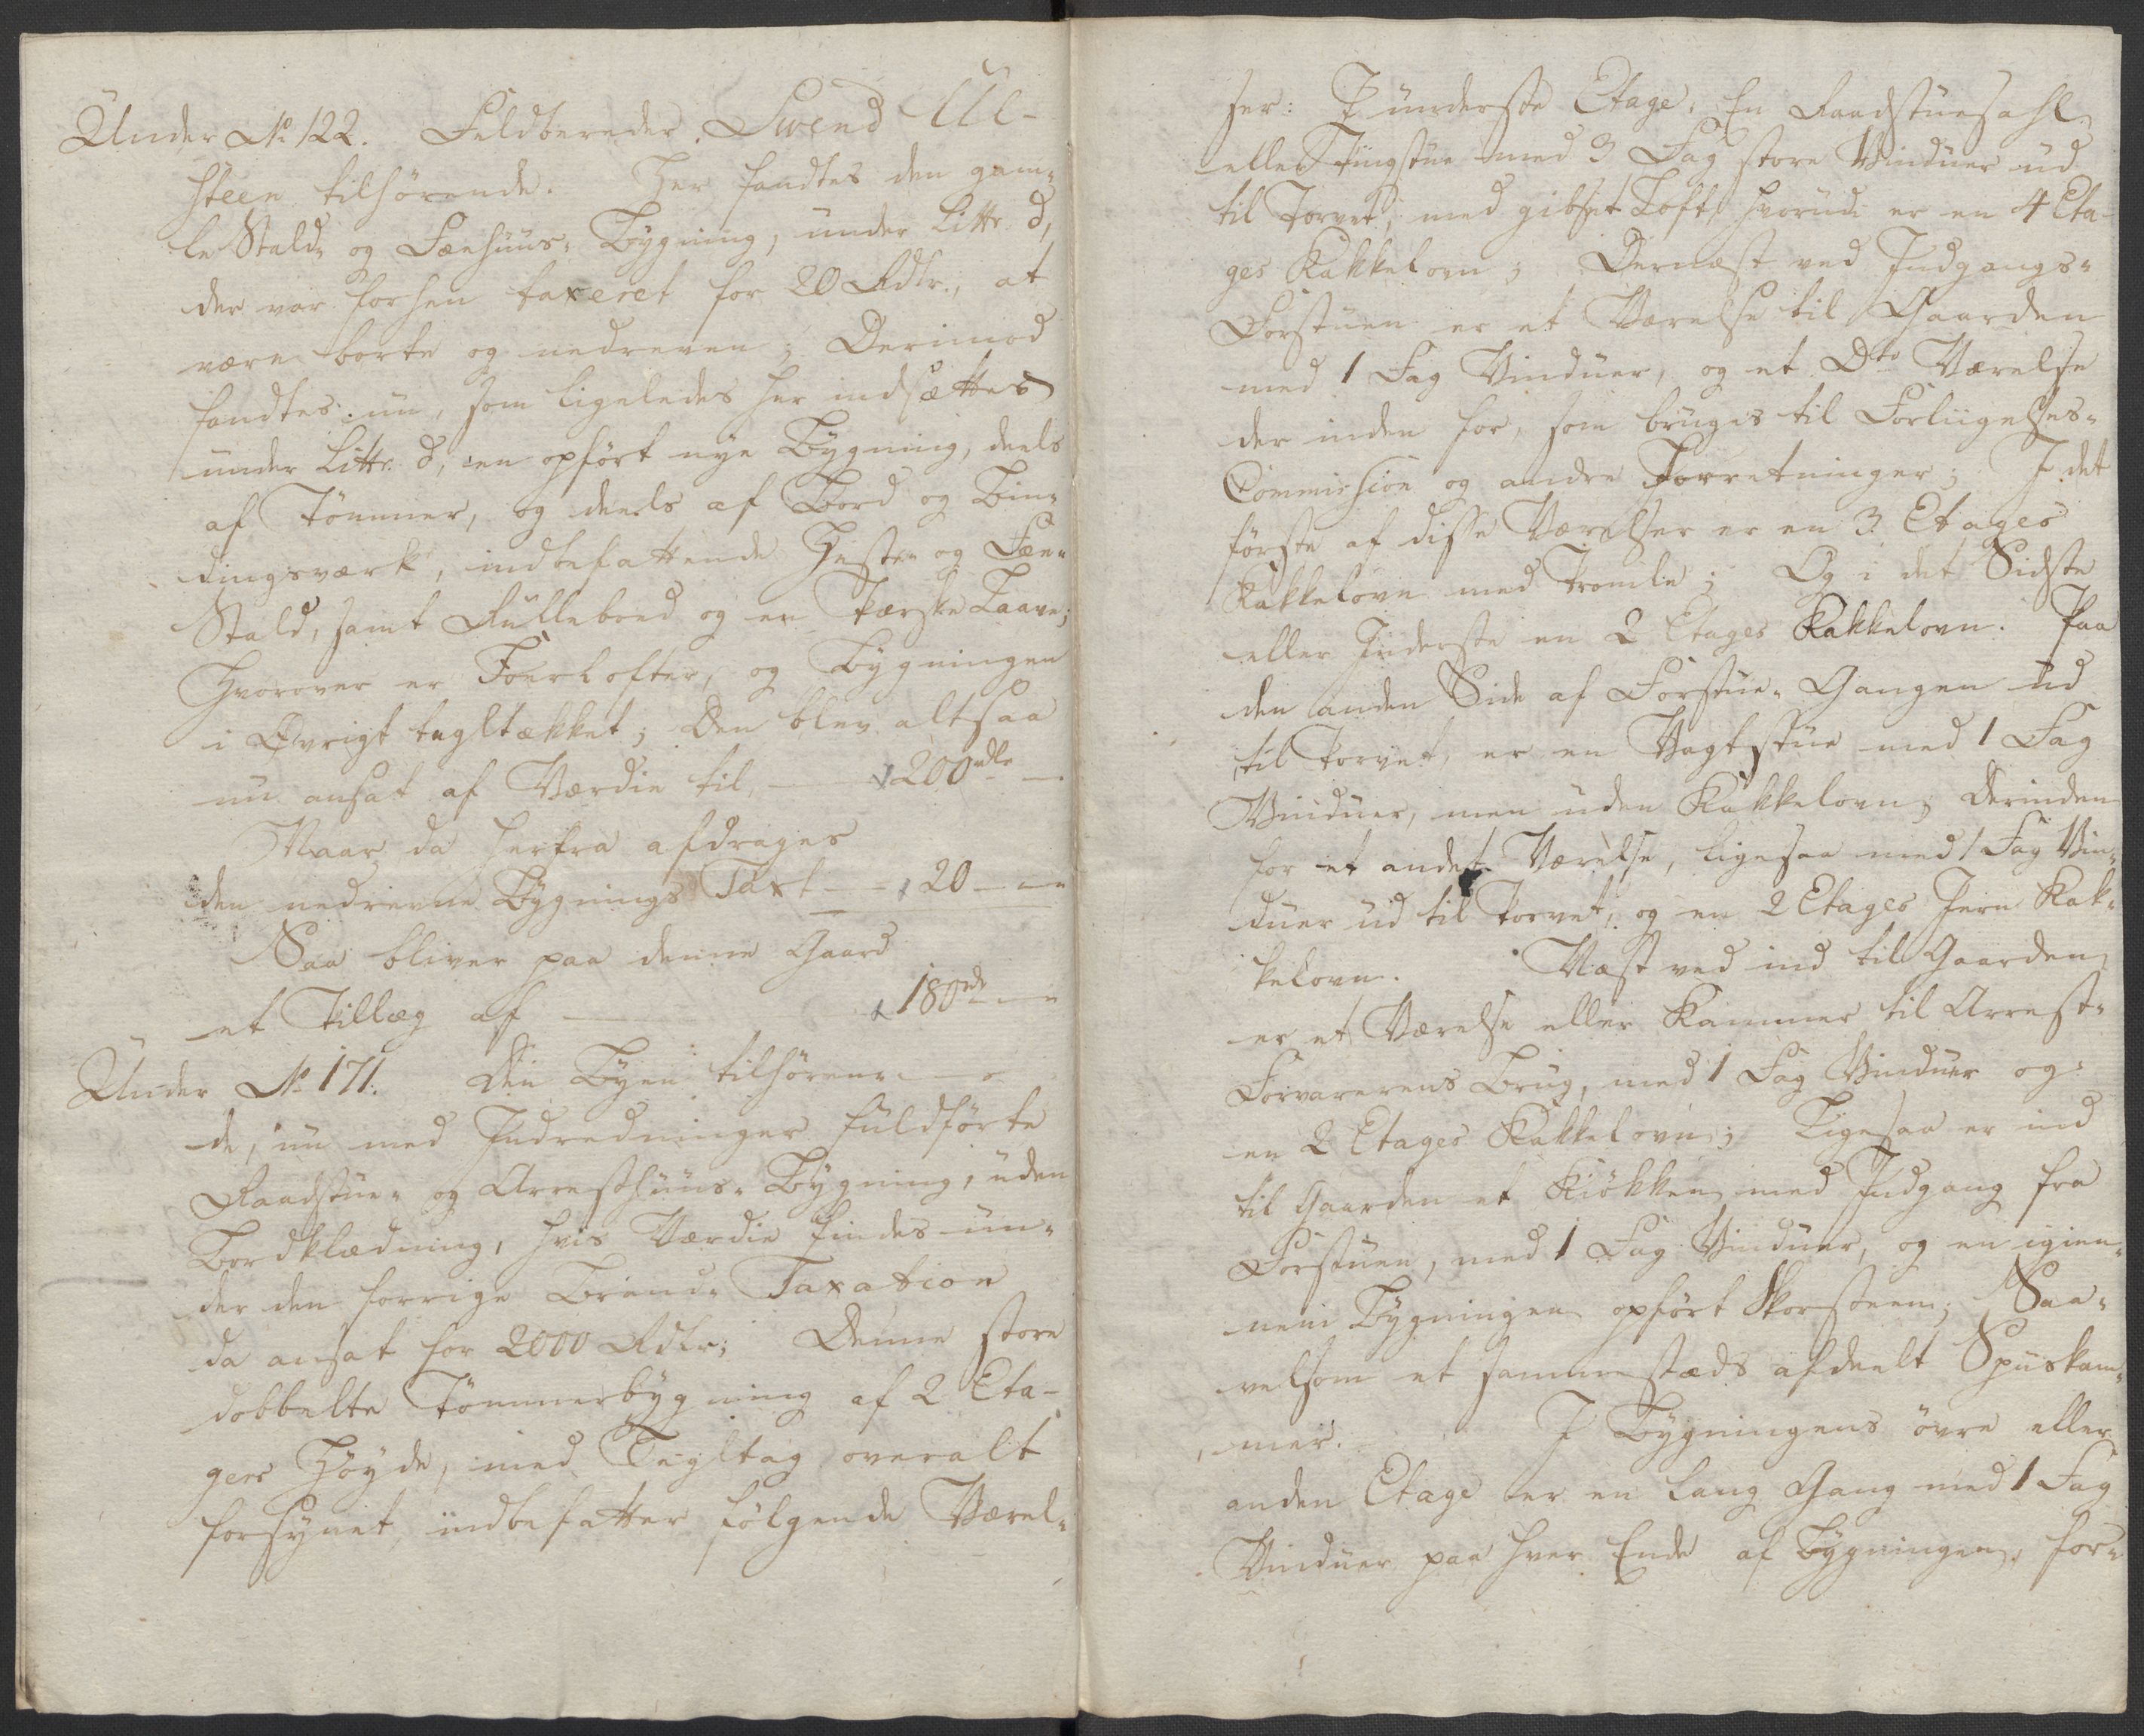 Under No 122. Feldbereder Swend Ul-
steen tilhørende. Her fandtes den gam-
le Stald- og Fæehuus-Bygning, under Littr. d,
der var forhen taxeret for 20 Rdlr., at
være borte og nedreven; Derimod
fandtes nu, som ligeledes her indsættes
under Littr. d, en opført nye Bygning, deels
af Tømmer, og deels af Bord og Bin-
dingsværk, indbefattende Heste- og Fæe-
Stald, samt Rullebord og en Tærske Laave;
Hvorover er Foerlofter, og Bygningen
i Øvrigt tegltækket; Den blev altsaa
nu ansat af Værdie til, — 200 rdlr —
Naar da herfra afdrages
den nedrevne Bygnings Taxt — 20 — —
Saa bliver paa denne Gaard
et Tillæg af — 180 rd — —
Under No 171. Den Byen tilhøren-
de, nu med Indredninger fuldførte
Raadstue- og Arresthuus-Bygning, uden
Bordklædning, hvis Værdie findes un-
der den forrige Brand-Taxation
da ansat for 2000 Rdlr; Denne store
dobbelte Tømmerbygning af 2 Eta-
gers Høyde, med Tegltag overalt
forsynet, indbefatter følgende Værel-
ser: I underste Etage: En Raadstuesahl
eller Tingstue med 3 Fag store Vinduer ud
til Torvet, med gibset Loft, hvorudi er en 4 Eta-
ges Kakkelovn; Dernæst ved Indgangs-
Forstuen er et Værelse til Gaarden
med 1 Fag Vinduer, og et Dto Værelse
der inden for, som bruges til Forliigelses-
Commission og andre Forretninger; I det
første af disse Værelser er en 3 Etages
Kakkelovn med Tromle; Og i det Sidste
eller Inderste en 2 Etages Kakkelovn. Paa
den anden Side af Forstue-Gangen ud
til Torvet, er en Vagtstue med 1 Fag
Vinduer, men uden Kakkelovn; Derinden
for et andet Værelse, ligesaa med 1 Fag Vin-
duer ud til Torvet, og en 2 Etages Jern Kak-
kelovn. Næst ved ind til Gaarden
er et Værelse eller Kammer til Arrest-
Forvarerens Brug, med 1 Fag Vinduer og
en 2 Etages Kakkelovn; Ligesaa er ind
til Gaarden et Kiøkken med Indgang fra
Forstuen, med 1 Fag Vinduer, og en igien-
nem Bygningen opført Skorsteen; Saa-
velsom et sammestæds afdeelt Spiiskam-
mer. I Bygningens øvre eller
anden Etage er en lang Gang med 1 Fag
Vinduer paa hver Ende af Bygningen, for-